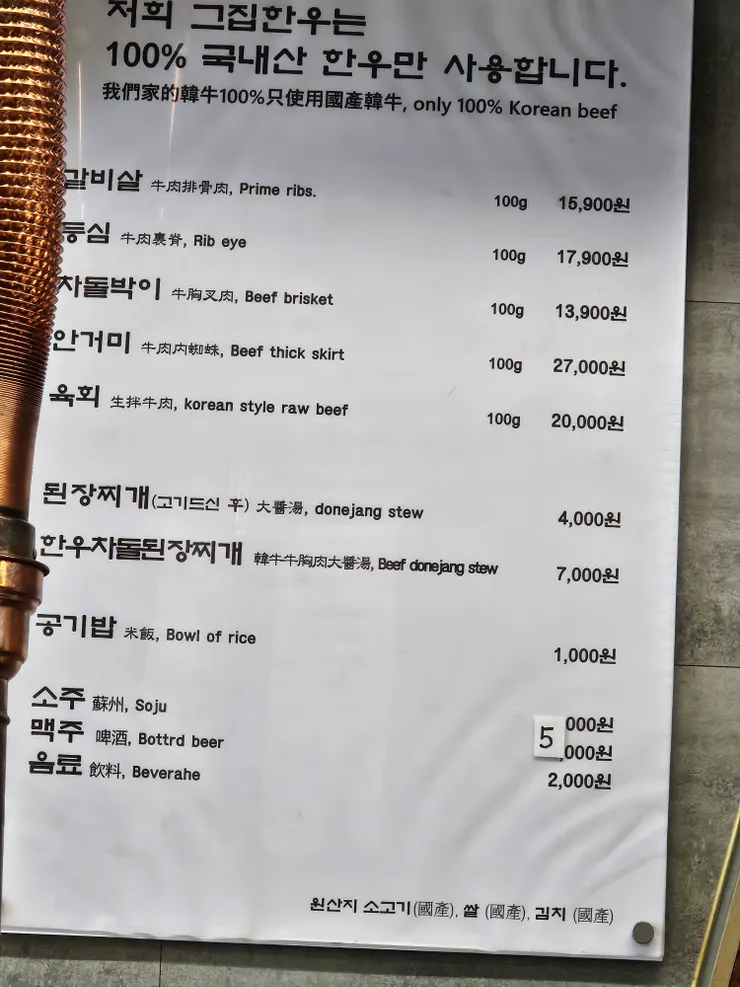 저희 그집한우는
100% 국내산 한우만 사용합니다.
我們家的韓牛100%只使用國產韓牛, only 100% Korean beef
갈비살 牛肉排骨肉, Prime ribs. 100g 15,900원
등심 牛肉裏脊, Rib eye 100g 17,900원
차돌박이 牛胸叉肉, Beef brisket 100g 13,900원
안거미 牛肉内蜘蛛, Beef thick skirt 100g 27,000원
육회 生拌牛肉, korean style raw beef 100g 20,000원
된장찌개(고기드신 후) 大醬湯, donejang stew 4,000원
한우차돌된장찌개 韓牛牛胸肉大醬湯, Beef donejang stew 7,000원
공기밥 米飯, Bowl of rice 1,000원
소주 蘇州, Soju 5 000원
맥주 啤酒, Bottrd beer ,000원
음료 飮料, Beverahe 2,000원
원산지 소고기(國產), 쌀 (國產), 김치 (國產)